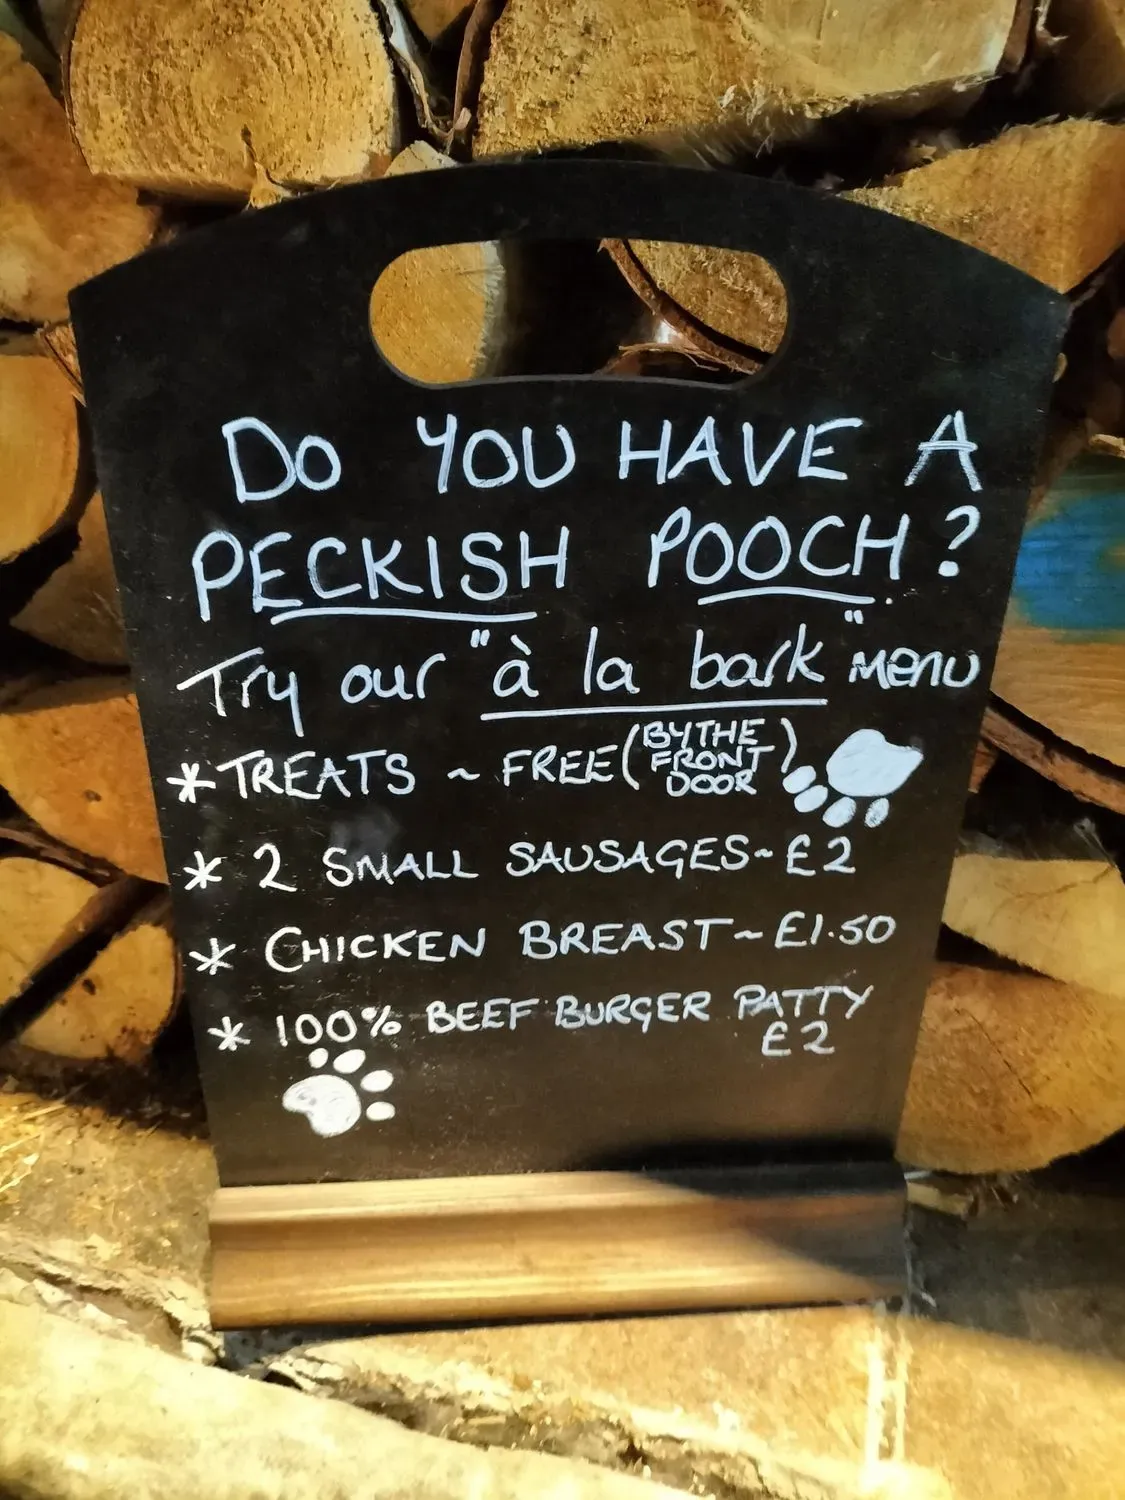 DO YOU HAVE A
PECKISH POOCH?
Try our "à la bark" menu
* TREATS ~ FREE (BY THE FRONT DOOR)
* 2 SMALL SAUSAGES ~ £2
* CHICKEN BREAST ~ £1.50
* 100% BEEF BURGER PATTY
£2